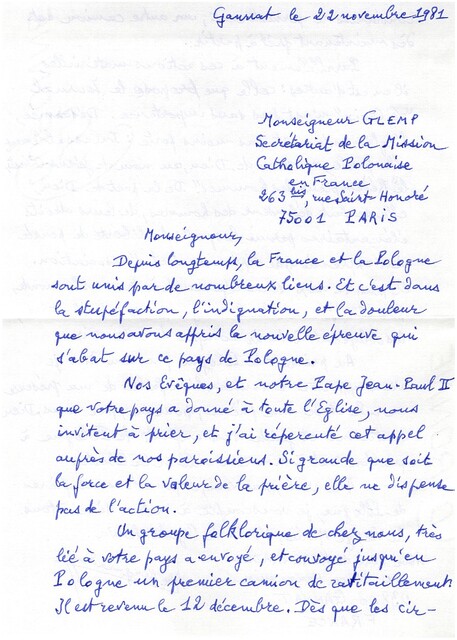 Gannat le 22 novembre 1981
Monseigneur GLEMP
Secrétariat de la Mission
Catholique Polonaise
en France
263 bis, rue Saint Honoré
75001 PARIS
Monseigneur,
Depuis longtemps, la France et la Pologne
sont unis par de nombreux liens. Et c'est dans
la stupéfaction, l'indignation, et la douleur
que nous avons appris la nouvelle épreuve qui
s'abat sur ce pays de Pologne.
Nos Evêques, et notre Pape Jean-Paul II
que votre pays a donné à toute l'Eglise, nous
invitent à prier, et j'ai répercuté cet appel
auprès de nos paroissiens. Si grande que soit
la force et la valeur de la prière, elle ne dispense
pas de l'action.
Un groupe folklorique de chez nous, très
lié à votre pays a envoyé, et convoyé jusqu'en
Pologne un premier camion de ravitaillement.
Il est revenu le 12 décembre. Dès que les cir-